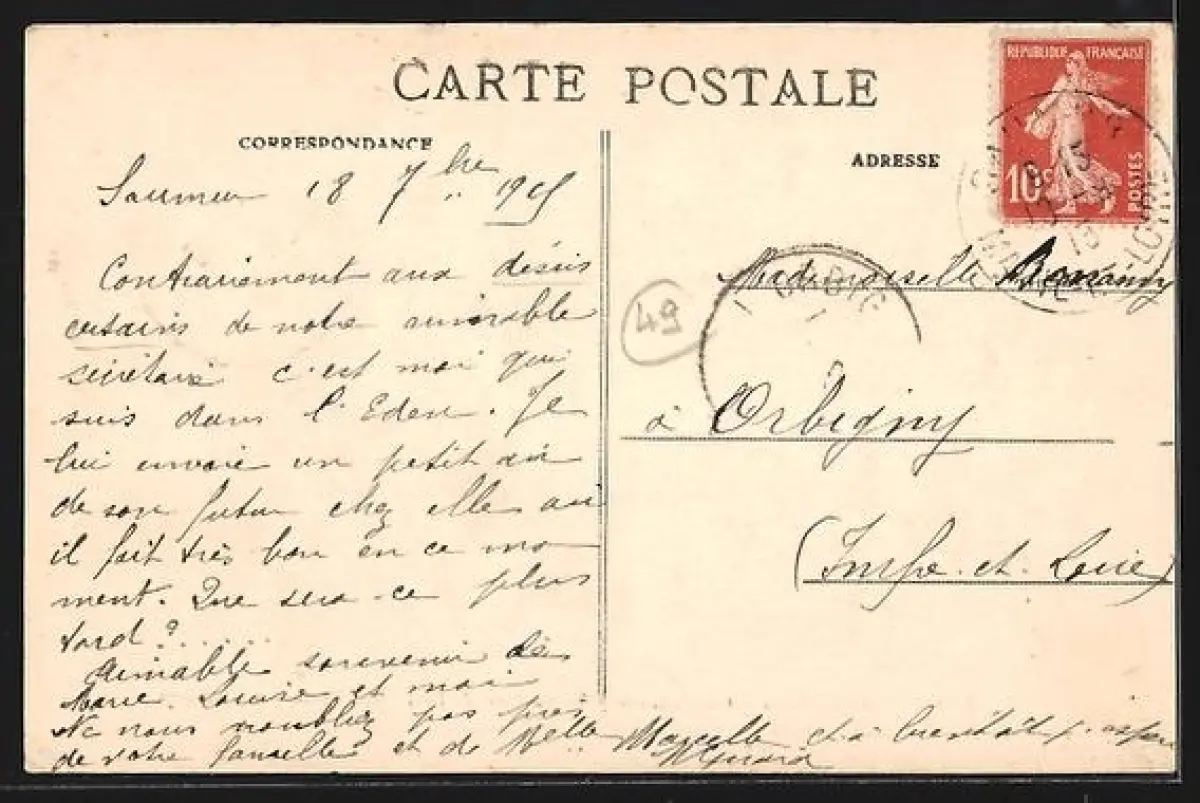 CARTE POSTALE
CORRESPONDANCE
ADRESSE
REPUBLIQUE FRANÇAISE
10c
POSTES
Saumur 18 7bre
Contrairement aux désirs
certains de notre aimable
secrétaire c'est moi qui
suis dans l'Eden. Je
lui envoie un petit air
de son futur chez elle où
il fait très bon en ce mo
ment. Que sera-ce plus
tard ?.....
Aimable souvenir de
Marie Louise et moi
Ne nous oubliez pas près
de votre famille et de Melle Marcelle et à bientôt j'espère
Mademoiselle
à Orbigny
(Indre-et-Loire)
49